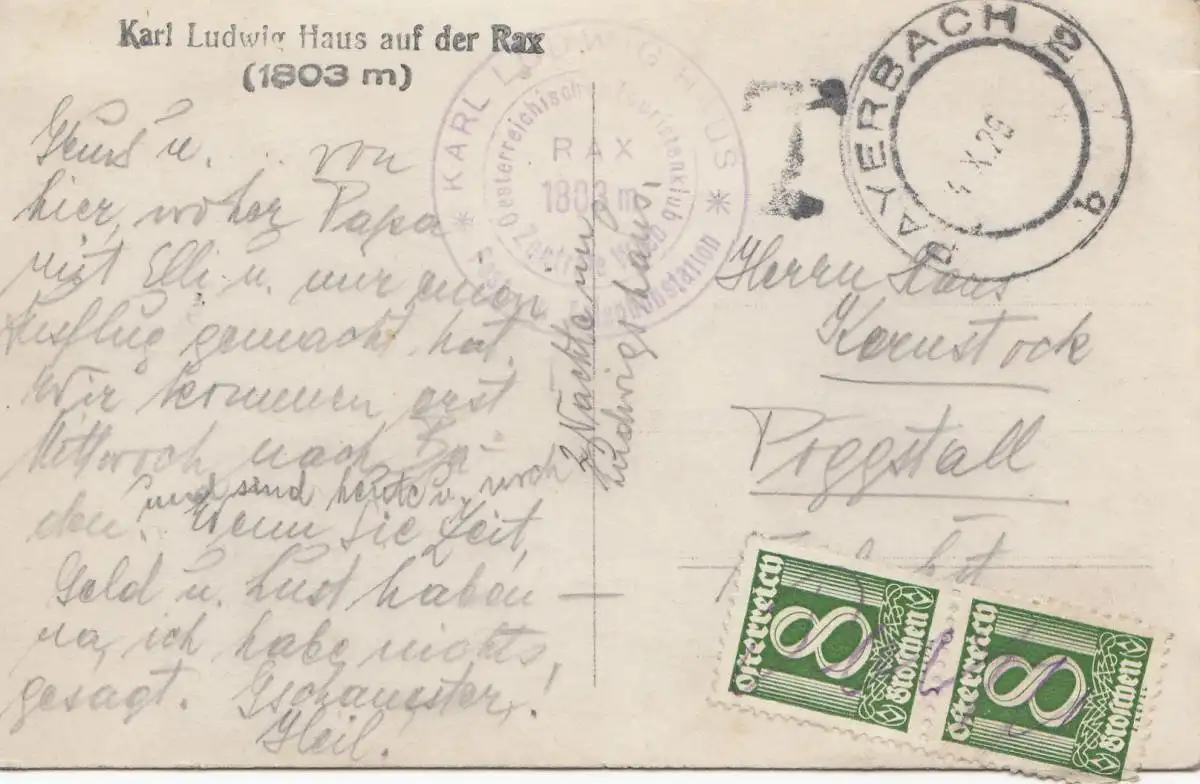 Karl Ludwig Haus auf der Rax
(1803 m)
Gruß u. von
hier, woher Papa
mit Elli u. mir einen
Ausflug gemacht hat.
Wir kommen erst
Mittwoch nach Ba-
und sind heute u. noch
2 Nächte im
Ludwigshaus!
den. Wenn Sie Zeit,
Geld u. Lust haben —
na, ich habe nichts
gesagt.
Heil!
* KARL LUDWIG HAUS *
Oesterreichischer Touristenklub
Zentrale Wien
RAX
1803 m
T
PAYERBACH 2
X. 26
a
Herrn Hans
Kernstock
Pöggstall
Österreich
8
Groschen
Österreich
8
Groschen